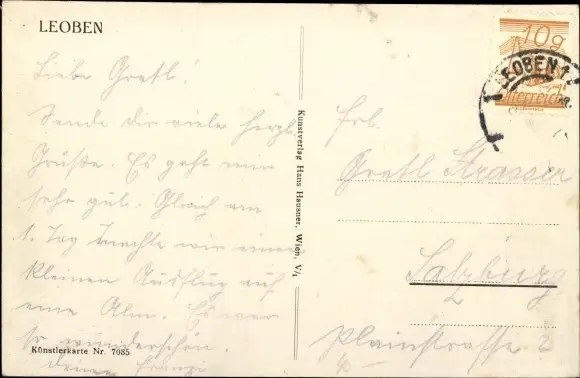 LEOBEN
Liebe Gretl!
Sende dir viele herzl.
Grüße. Es geht mir
sehr gut. Gleich am
1. Tag machte wir einen
kleinen Ausflug auf
eine Alm. Es war
so wunderschön.
deine Franzi
Künstlerkarte Nr. 7035
Kunstverlag Hans Hausner, Wien, V/1
10g
Österreich
LEOBEN 1
Frl.
Gretl Strasser
Salzburg
Plainstrasse 2